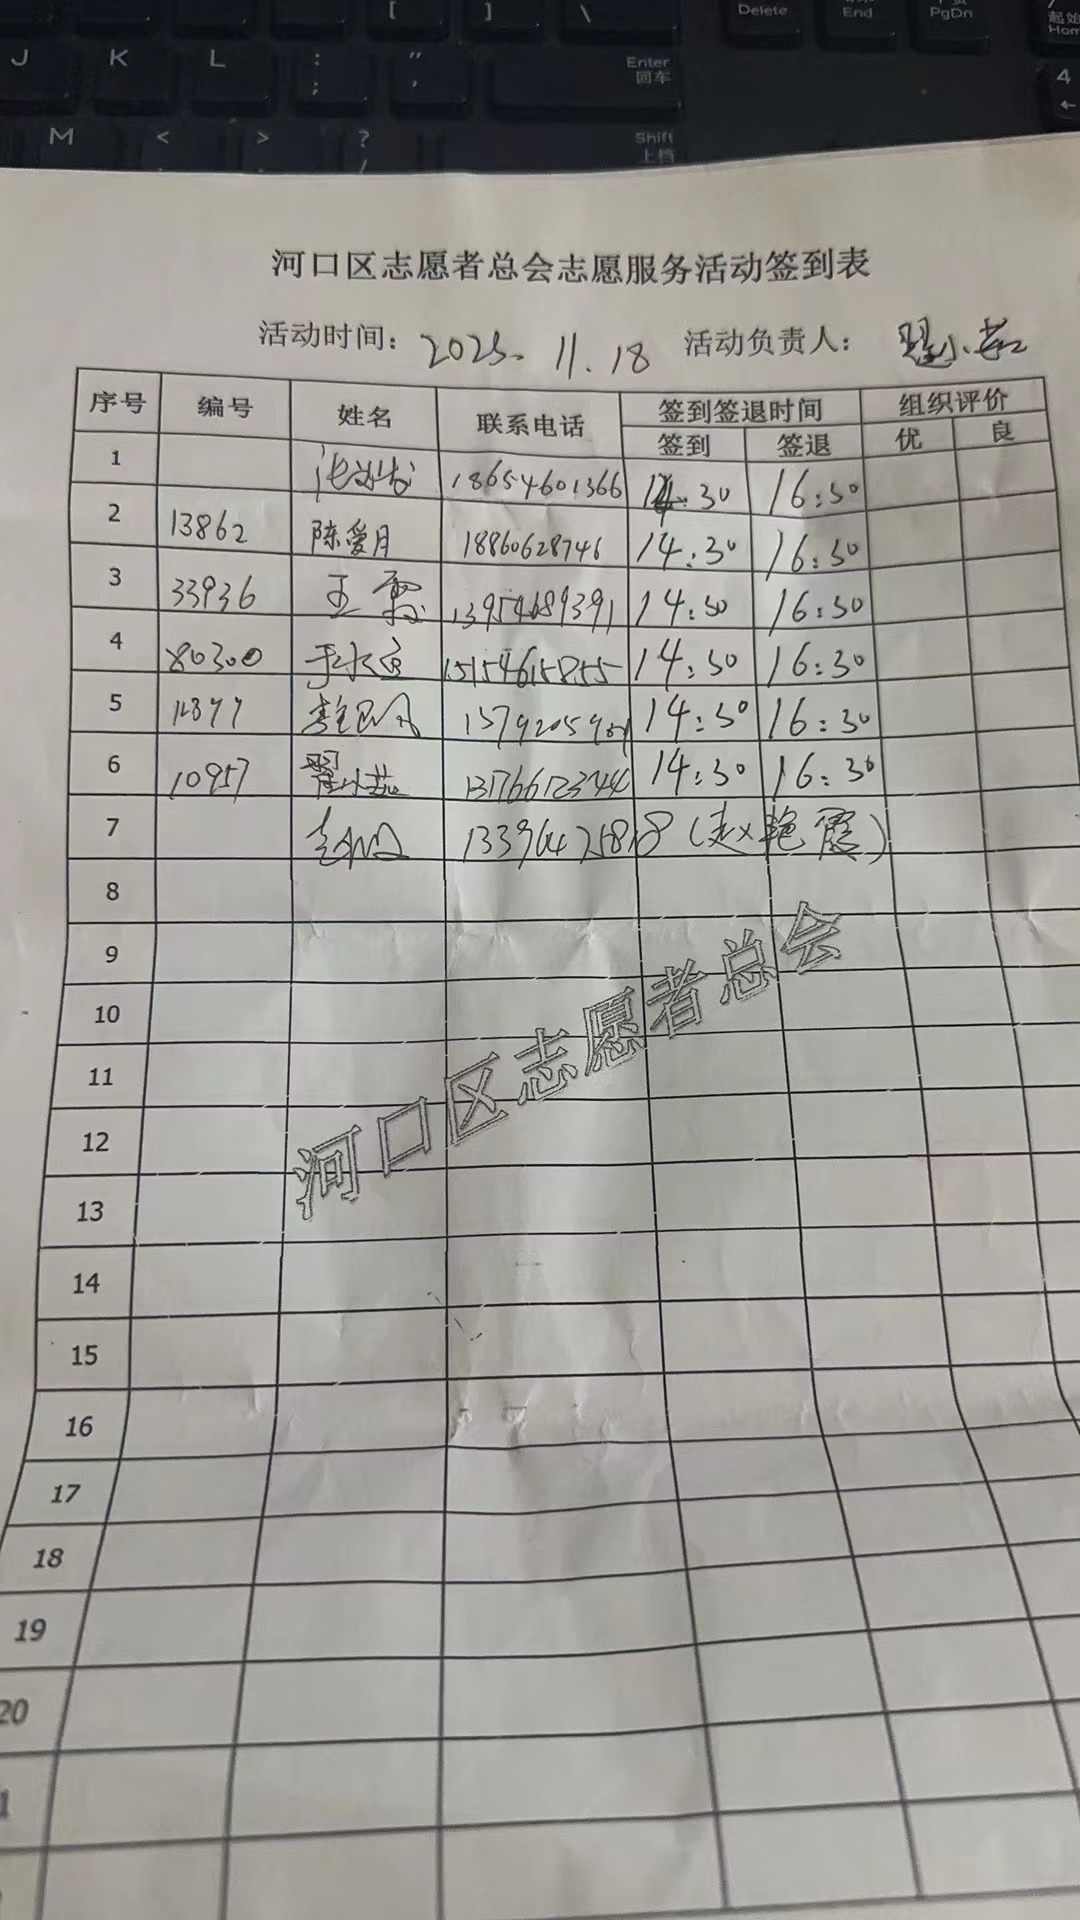 [
]
\
Delete
End
PgDn
起始
Home
J
K
L
:
;
"
,
Enter
回车
4
←
M
<
>
?
/
Shift
上档
河口区志愿者总会志愿服务活动签到表
活动时间: 2025.11.18 活动负责人: 翟小茹
序号 编号 姓名 联系电话 签到签退时间 组织评价
签到 签退 优 良
1 18654601366 14:30 16:30
2 13862 陈爱月 18860628746 14:30 16:30
3 33936 王霞 13954689391 14:30 16:30
4 80300 15154615855 14:30 16:30
5 14:30 16:30
6 10957 翟小茹 13176612344 14:30 16:30
7 (赵艳霞)
8
9
10
11
12
13
14
15
16
17
18
19
20
河口区志愿者总会